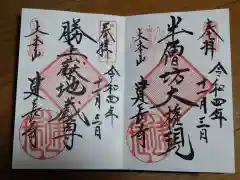 奉拝
令和四年
十一月三日
半僧坊大権現
大本山
建長寺
奉拝
令和四年
十一月三日
勝上嶽地蔵尊
大本山
建長寺